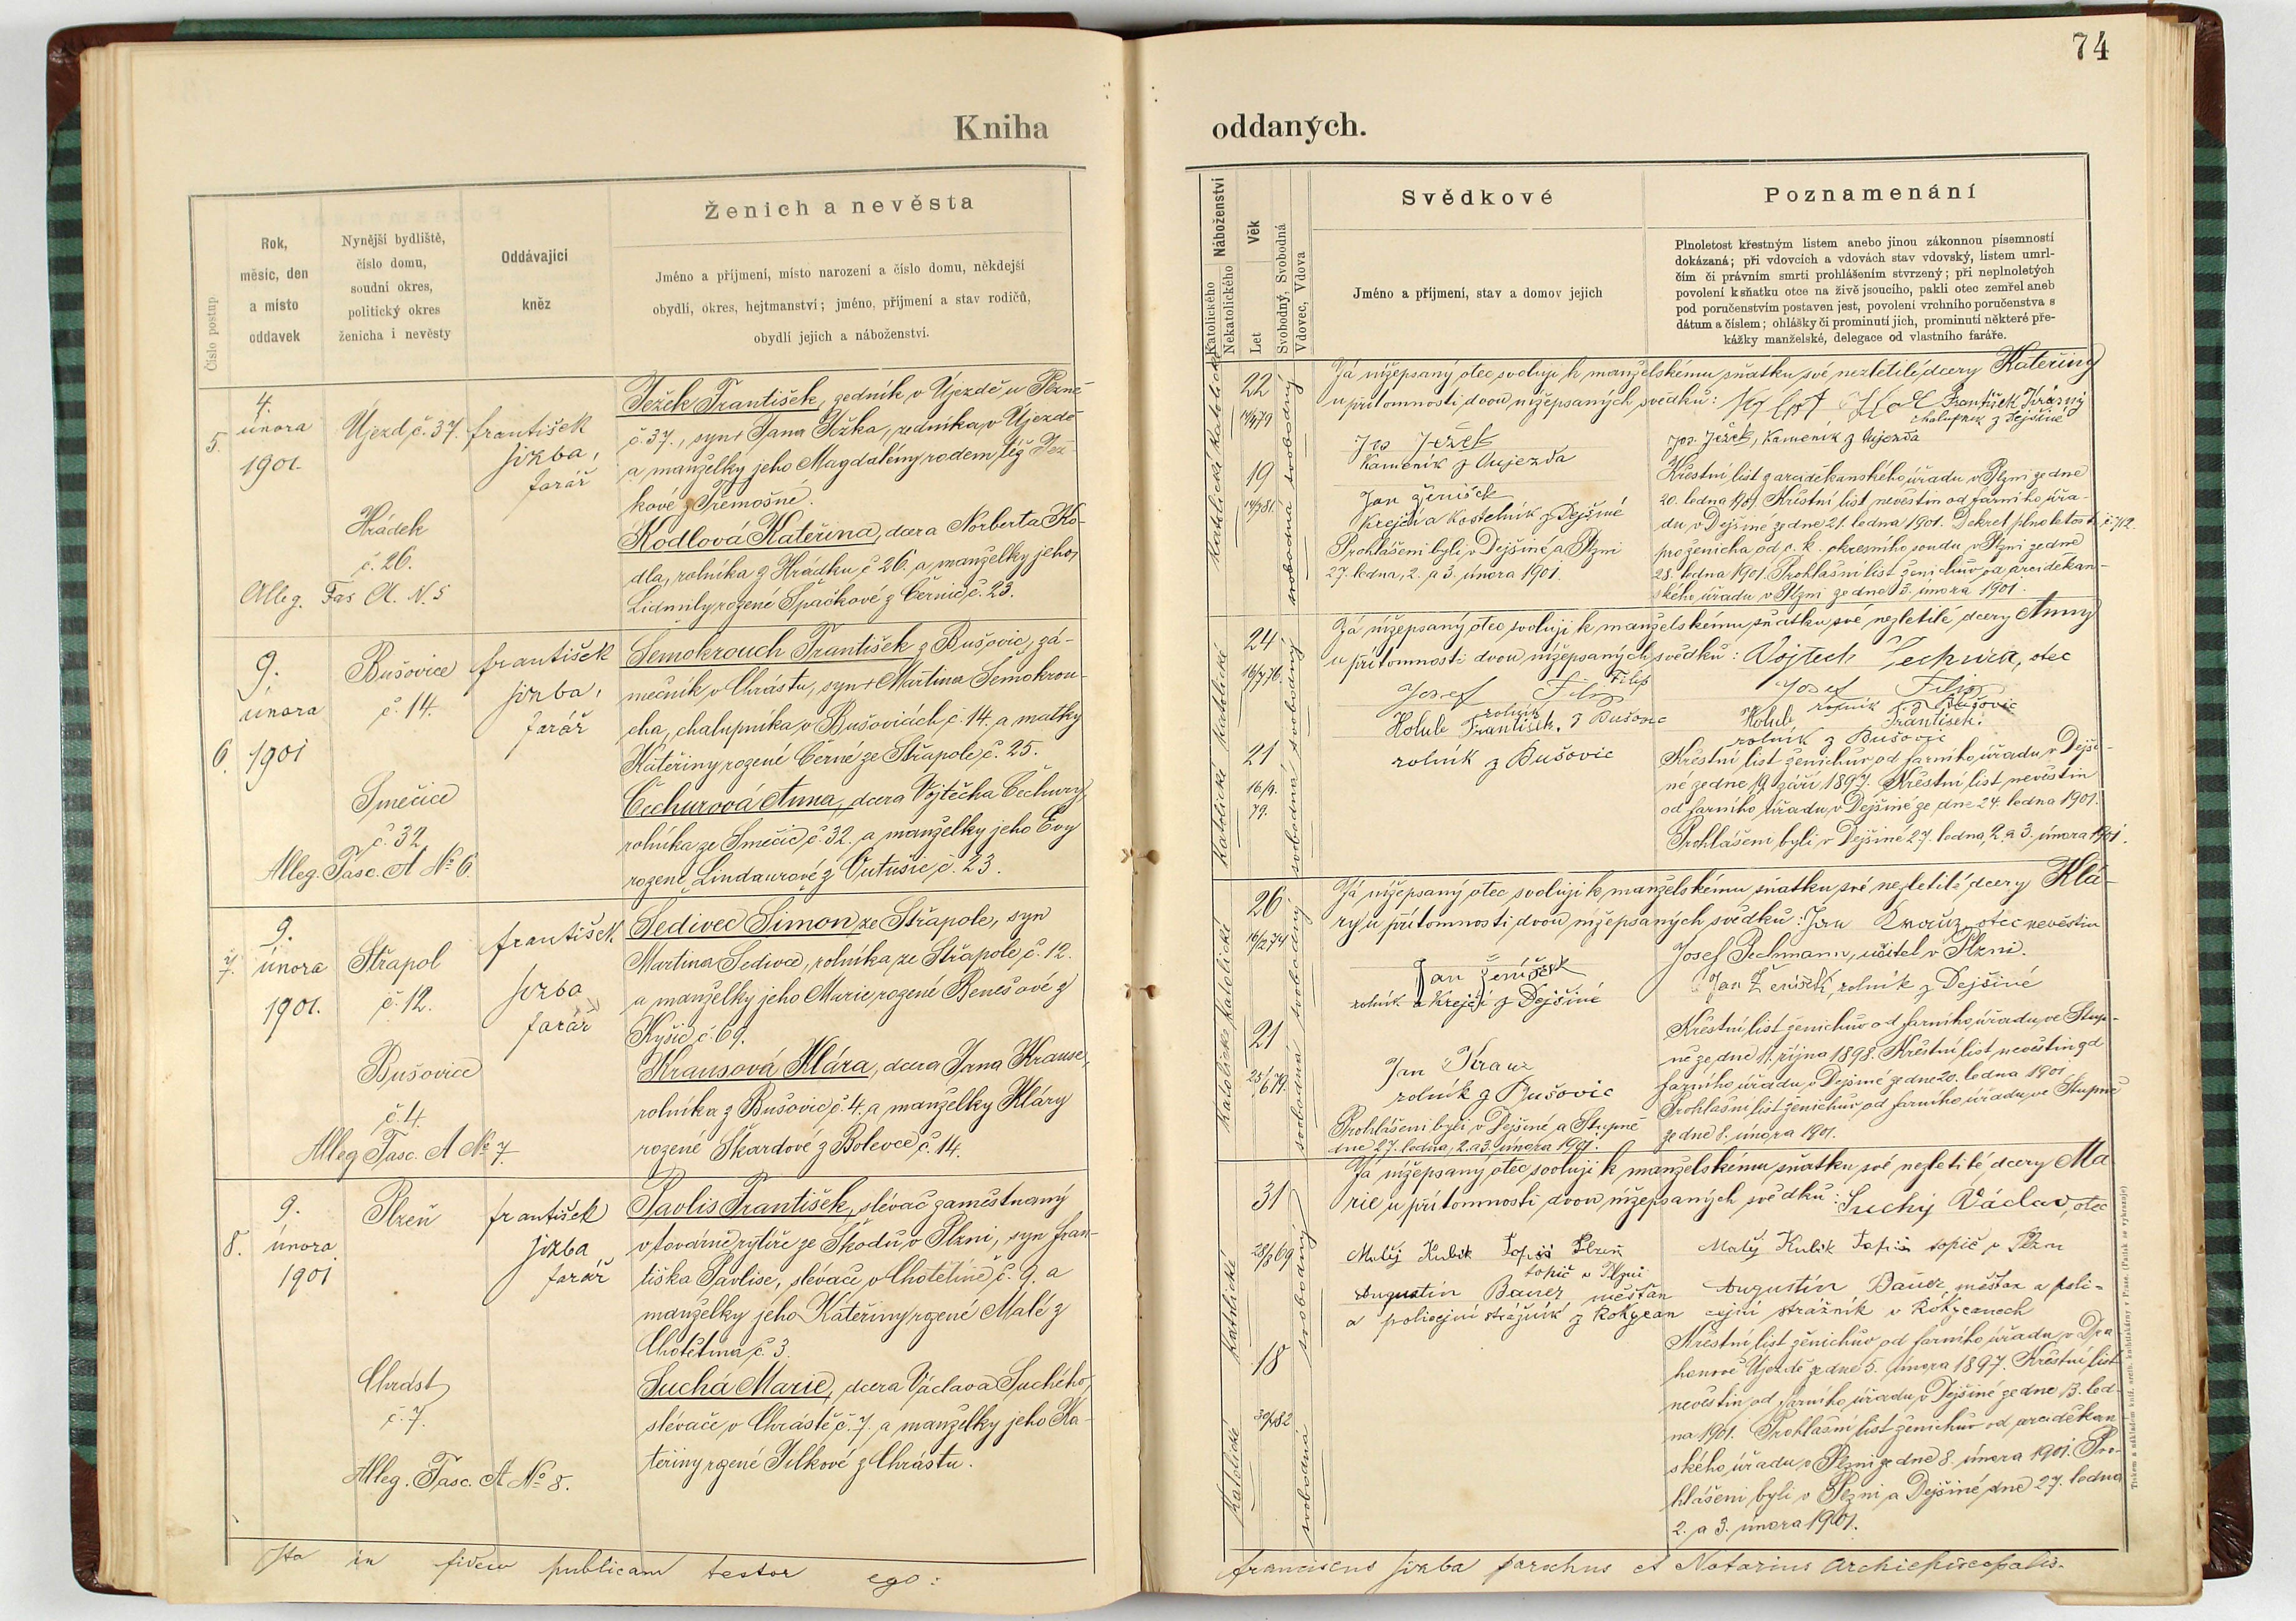 74
Kniha
oddaných.
Číslo postup.
Rok,
měsíc, den
a místo
oddavek
Nynější bydliště,
číslo domu,
soudní okres,
politický okres
ženicha i nevěsty
Oddávající
kněz
Ženich a nevěsta
Jméno a příjmení, místo narození a číslo domu, někdejší
obydlí, okres, hejtmanství; jméno, příjmení a stav rodičů,
obydlí jejich a náboženství.
5.
4.
února
1901.
Újezd č. 37.
František
Jirba,
farář
Ježek František, zedník v Újezdě u Plzně
č. 37., syn † Jana Ježka, zedníka v Újezdě
a manželky jeho Magdalény rodem též Jež-
kové z Třemošné.
Hrádek
č. 26.
Alleg. Fas. A. N. 5
Kodlová Kateřina, dcera Norberta Ko-
dla, rolníka z Hrádku č 26. a manželky jeho,
Lidmily rozené Špačkové z Černic č. 23.
6.
9.
února
1901
Bušovice
č. 14.
František
Jirba,
farář
Semokrouch František z Bušovic, zá-
mečník v Chrástu, syn † Martina Semokrou-
cha, chalupníka v Bušovicích č. 14. a matky
Kateřiny rozené Černé ze Střapole č. 25.
Smečice
č. 32
Alleg. Fasc. A No 6.
Čechurová Anna, dcera Vojtěcha Čechury,
rolníka ze Smečic č. 32. a manželky jeho Evy
rozené Lindaurové z Vutušic č. 23.
7.
9.
února
1901.
Střapol
č. 12.
František
Jirba
farář
Sedivec Simon ze Střapole, syn
Martina Sedivce, rolníka ze Střapole č. 12.
a manželky jeho Marie rozené Benešové z
Kyšic č. 69.
Bušovice
č. 4.
Alleg Fasc. A No 7.
Krausová Klára, dcera Jana Krause,
rolníka z Bušovic č. 4. a manželky Kláry
rozené Škardové z Bolevce č. 14.
8.
9.
února
1901
Plzeň
František
Jirba
farář
Pavlis František, slévač zaměstnaný
v továrně rytíře ze Škodů v Plzni, syn Fran-
tiška Pavlise, slévače v Chotětíně č. 9. a
manželky jeho Kateřiny rozené Malé z
Chotětína č. 3.
Chrást
č. 7.
Alleg. Fasc. A No 8.
Suchá Marie, dcera Václava Suchého,
slévače v Chrástě č. 7. a manželky jeho Ka-
teřiny rozené Jílkové z Chrástu.
Ita in fidem publicam testor ego:
Náboženství
Katolického
Nekatolického
Věk
Let
Svobodný, Svobodná
Vdovec, Vdova
Svědkové
Jméno a příjmení, stav a domov jejich
Poznamenání
Plnoletost křestným listem anebo jinou zákonnou písemností
dokázaná; při vdovcích a vdovách stav vdovský, listem umrl-
čím či právním smrti prohlášením stvrzený; při neplnoletých
povolení k sňatku otce na živě jsoucího, pakli otec zemřel aneb
pod poručenstvím postaven jest, povolení vrchního poručenstva s
dátum a číslem; ohlášky či prominutí jich, prominutí některé pře-
kážky manželské, delegace od vlastního faráře.
Já nížepsaný otec svoluji k manželskému sňatku své nezletilé dcery Kateřiny
u přítomnosti dvou nížepsaných svědků:
František Krásný
chalupník z Dejšiné
22
katolické
svobodný
Jos Ježek
Kameník z Aujezda
Jos. Ježek, Kameník z Aujezda
19
katolická
svobodná
Jan Ženíšek
Krejčí a kostelník z Dejšiné
Prohlášeni byli v Dejšiné a Plzni
27. ledna, 2. a 3. února 1901.
Křestní list z arciděkanského úřadu v Plzni ze dne
20. ledna 1901. Křestní list nevěstin od farního úřa-
du v Dejšiné ze dne 21. ledna 1901. Dekret plnoletosti č. 712.
pro ženicha od c. k. okresního soudu v Plzni ze dne
28. ledna 1901. Prohlašní list ženichův od arciděkan-
ského úřadu v Plzni ze dne 3. února 1901.
Já nížepsaný otec svoluji k manželskému sňatku své nezletilé dcery Anny
u přítomnosti dvou nížepsaných svědků: Vojtech Čechura, otec
24
katolické
svobodný
Josef Filip
rolník
Holub František, z Bušovic
rolník z Bušovic
Josef Filip
rolník z Bušovic
Holub František
rolník z Bušovic
21
16/9.
79.
katolické
svobodná
Křestní list ženichův od farního úřadu v Dejši-
né ze dne 19. září 1897. Křestní list nevěstin
od farního úřadu v Dejšiné ze dne 24. ledna 1901.
Prohlášeni byli v Dejšiné 27. ledna, 2. a 3. února 1901.
Já nížepsaný otec svoluji k manželskému sňatku své nezletilé dcery Klá-
ry u přítomnosti dvou nížepsaných svědků: Jan Kraus, otec nevěstin
26
16/2 74
katolické
svobodný
Josef Pechmann, učitel v Plzni.
Jan Ženíšek
rolník a Krejčí z Dejšiné
Jan Ženíšek, rolník z Dejšiné
21
25/6 79.
katolické
svobodná
Jan Kraus
rolník z Bušovic
Prohlášeni byli v Dejšiné a Stupně
dne 27. ledna, 2. a 3. února 1901.
Křestní list ženichův od farního úřadu ve Stup-
ně ze dne 11. října 1898. Křestní list nevěstin od
farního úřadu v Dejšiné ze dne 20. ledna 1901.
Prohlašní list ženichův od farního úřadu ve Stupně
ze dne 8. února 1901.
Já nížepsaný otec svoluji k manželskému sňatku své nezletilé dcery Ma
rie u přítomnosti dvou nížepsaných svědků: Suchý Václav, otec
31
katolické
svobodný
Matěj Kubik Topič Plzeň
topič v Plzni
Augustin Bauer, měšťan
a policejní strážník z Rokycan
Matěj Kubik topič v Plzni
Augustin Bauer měšťan a poli-
cejní strážník v Rokycanech
18
katolické
svobodná
Křestní list ženichův od farního úřadu v Dra
honově Újezdě ze dne 5. února 1897. Křestní list
nevěstin od farního úřadu v Dejšiné ze dne 13. led-
na 1901. Prohlašní list ženichův od arciděkan
ského úřadu v Plzni ze dne 8. února 1901. Pro-
hlášeni byli v Plzni a Dejšiné dne 27. ledna
2. a 3. února 1901.
Franciscus Jirba parochus et Notarius Archiepiscopalis.